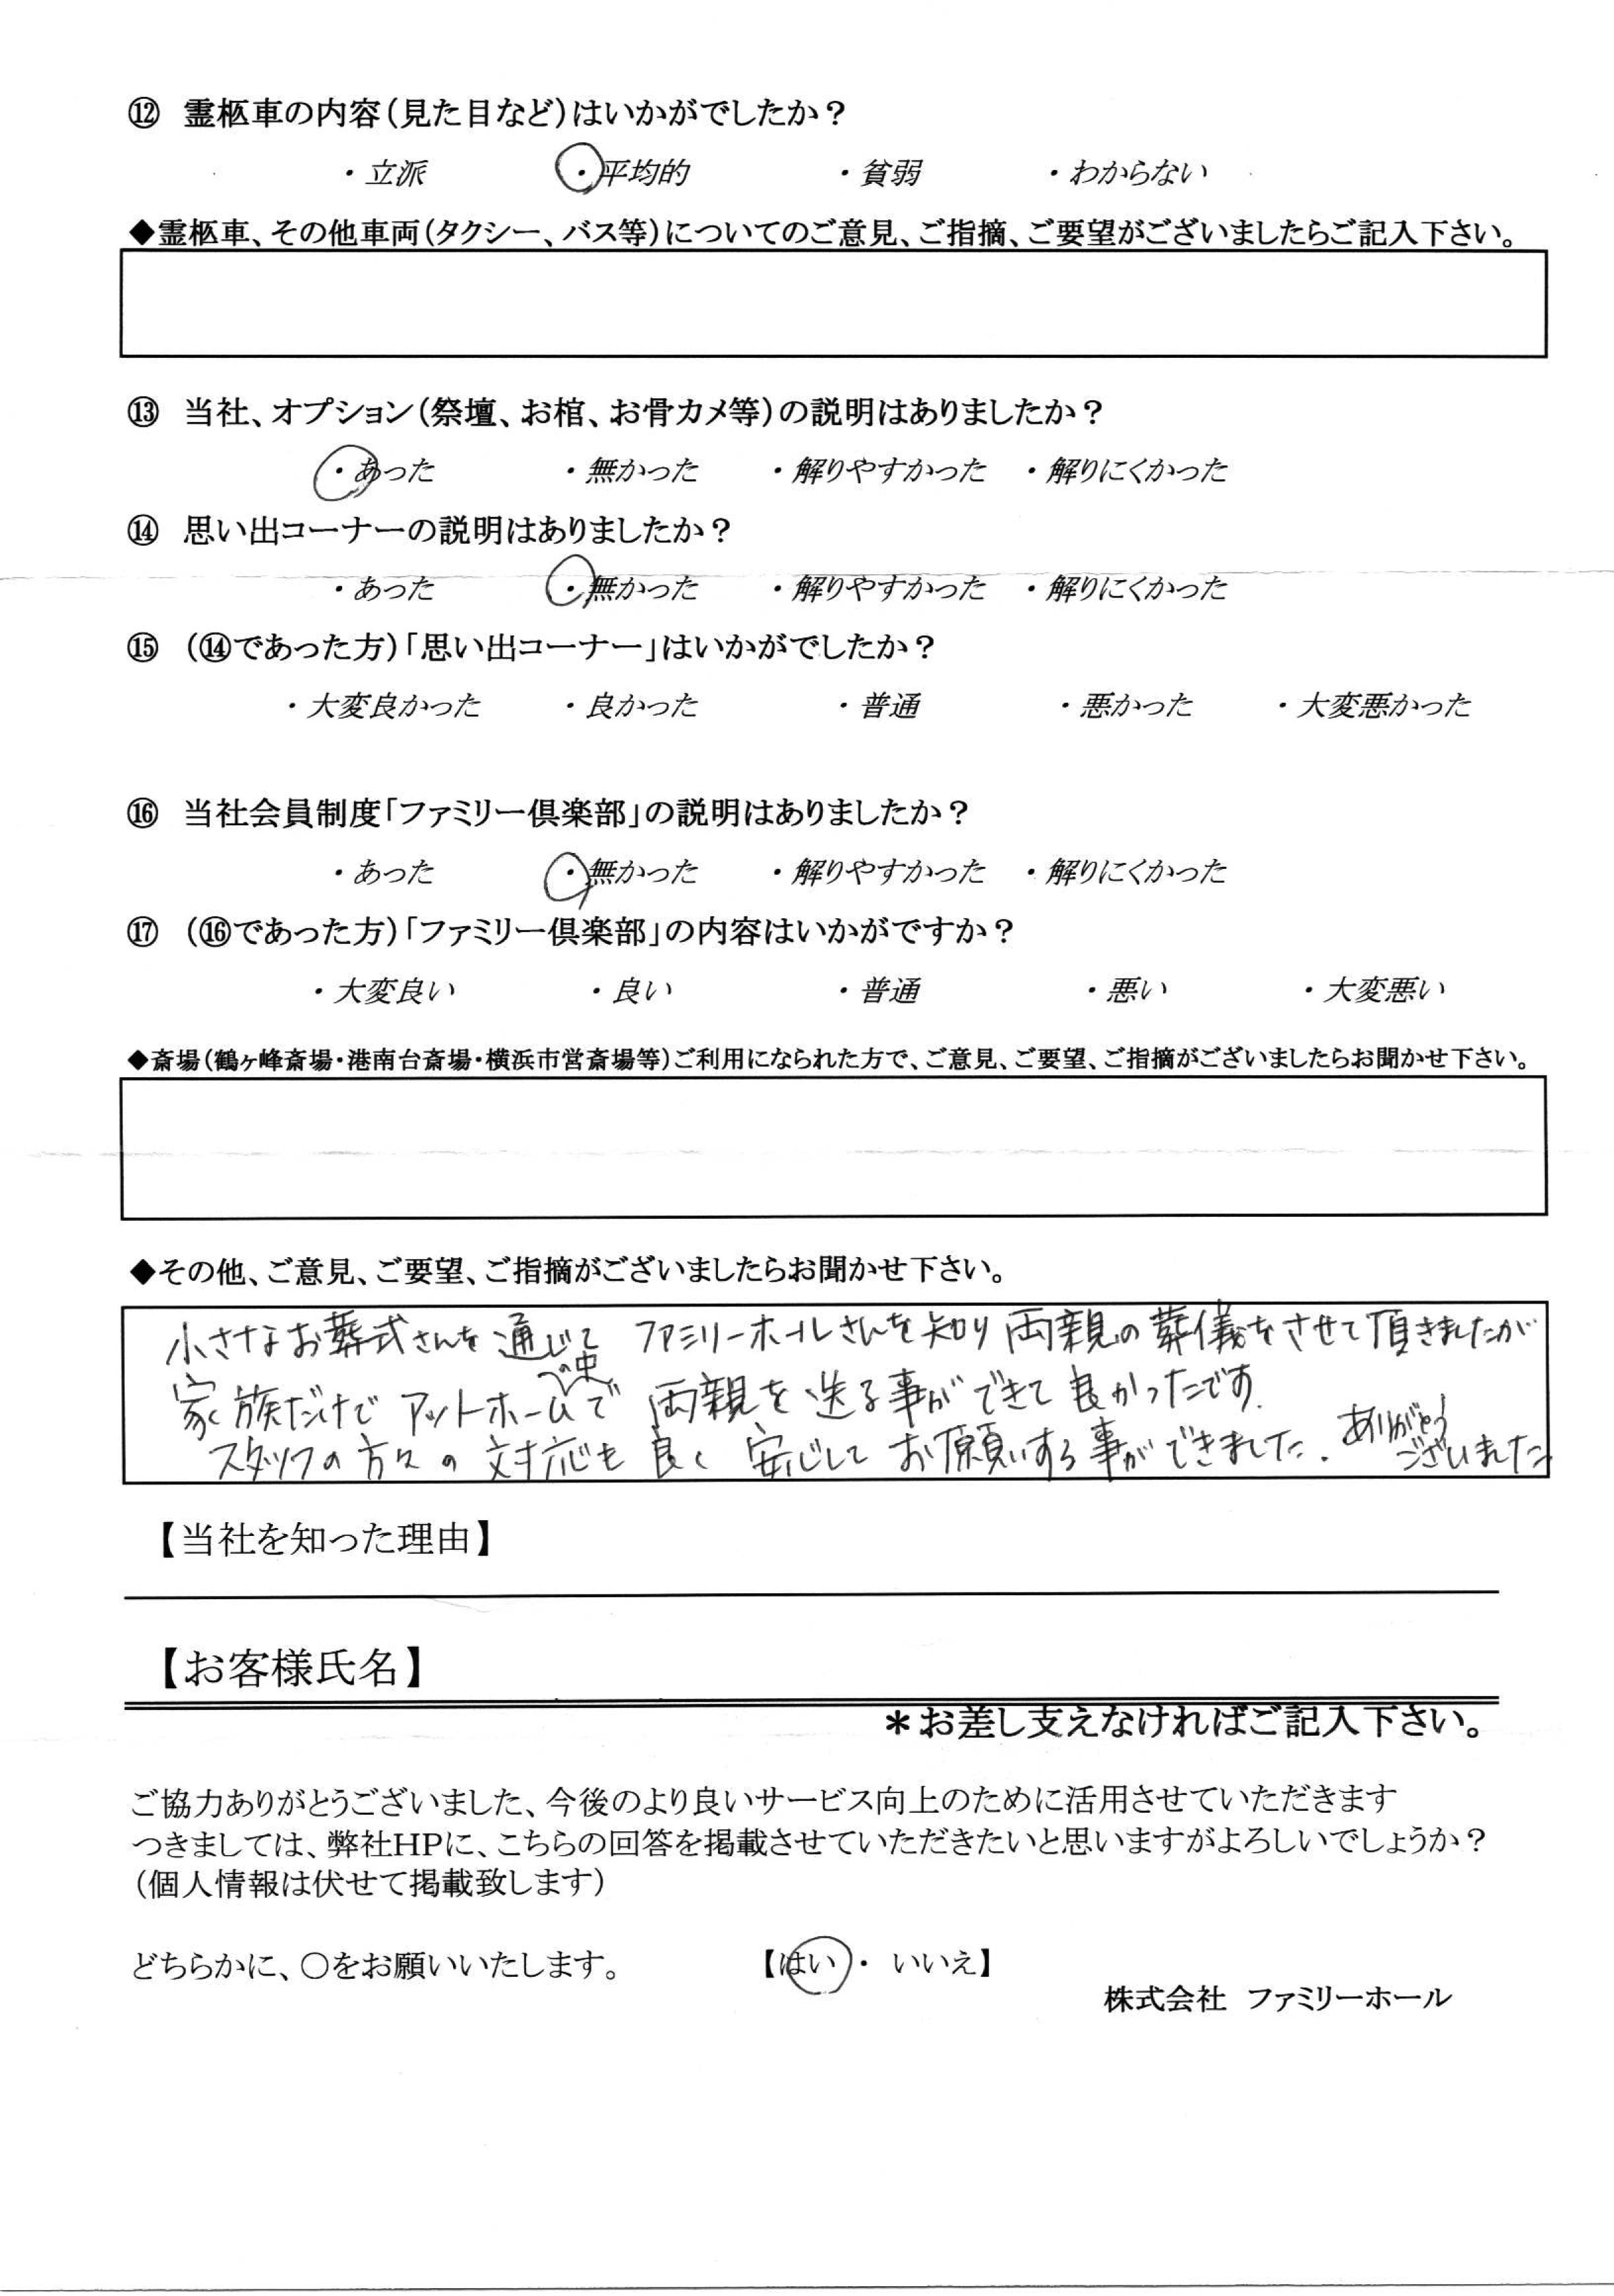 ⑫ 霊柩車の内容（見た目など）はいかがでしたか？
・立派 ・平均的 ・貧弱 ・わからない
◆霊柩車、その他車両（タクシー、バス等）についてのご意見、ご指摘、ご要望がございましたらご記入下さい。
⑬ 当社、オプション（祭壇、お棺、お骨カメ等）の説明はありましたか？
・あった ・無かった ・解りやすかった ・解りにくかった
⑭ 思い出コーナーの説明はありましたか？
・あった ・無かった ・解りやすかった ・解りにくかった
⑮ （⑭であった方）「思い出コーナー」はいかがでしたか？
・大変良かった ・良かった ・普通 ・悪かった ・大変悪かった
⑯ 当社会員制度「ファミリー倶楽部」の説明はありましたか？
・あった ・無かった ・解りやすかった ・解りにくかった
⑰ （⑯であった方）「ファミリー倶楽部」の内容はいかがですか？
・大変良い ・良い ・普通 ・悪い ・大変悪い
◆斎場（鶴ヶ峰斎場・港南台斎場・横浜市営斎場等）ご利用になられた方で、ご意見、ご要望、ご指摘がございましたらお聞かせ下さい。
◆その他、ご意見、ご要望、ご指摘がございましたらお聞かせ下さい。
小さなお葬式さんを通じて ファミリーホールさんを知り 両親の葬儀をさせて頂きましたが
家族だけで アットホームの中で 両親を送る事ができて良かったです.
スタッフの方々の対応も良く 安心してお願いする事ができました. ありがとう
ございました
【当社を知った理由】
【お客様氏名】
＊お差し支えなければご記入下さい。
ご協力ありがとうございました、今後のより良いサービス向上のために活用させていただきます
つきましては、弊社HPに、こちらの回答を掲載させていただきたいと思いますがよろしいでしょうか？
（個人情報は伏せて掲載致します）
どちらかに、〇をお願いいたします。 【はい・ いいえ】
株式会社 ファミリーホール